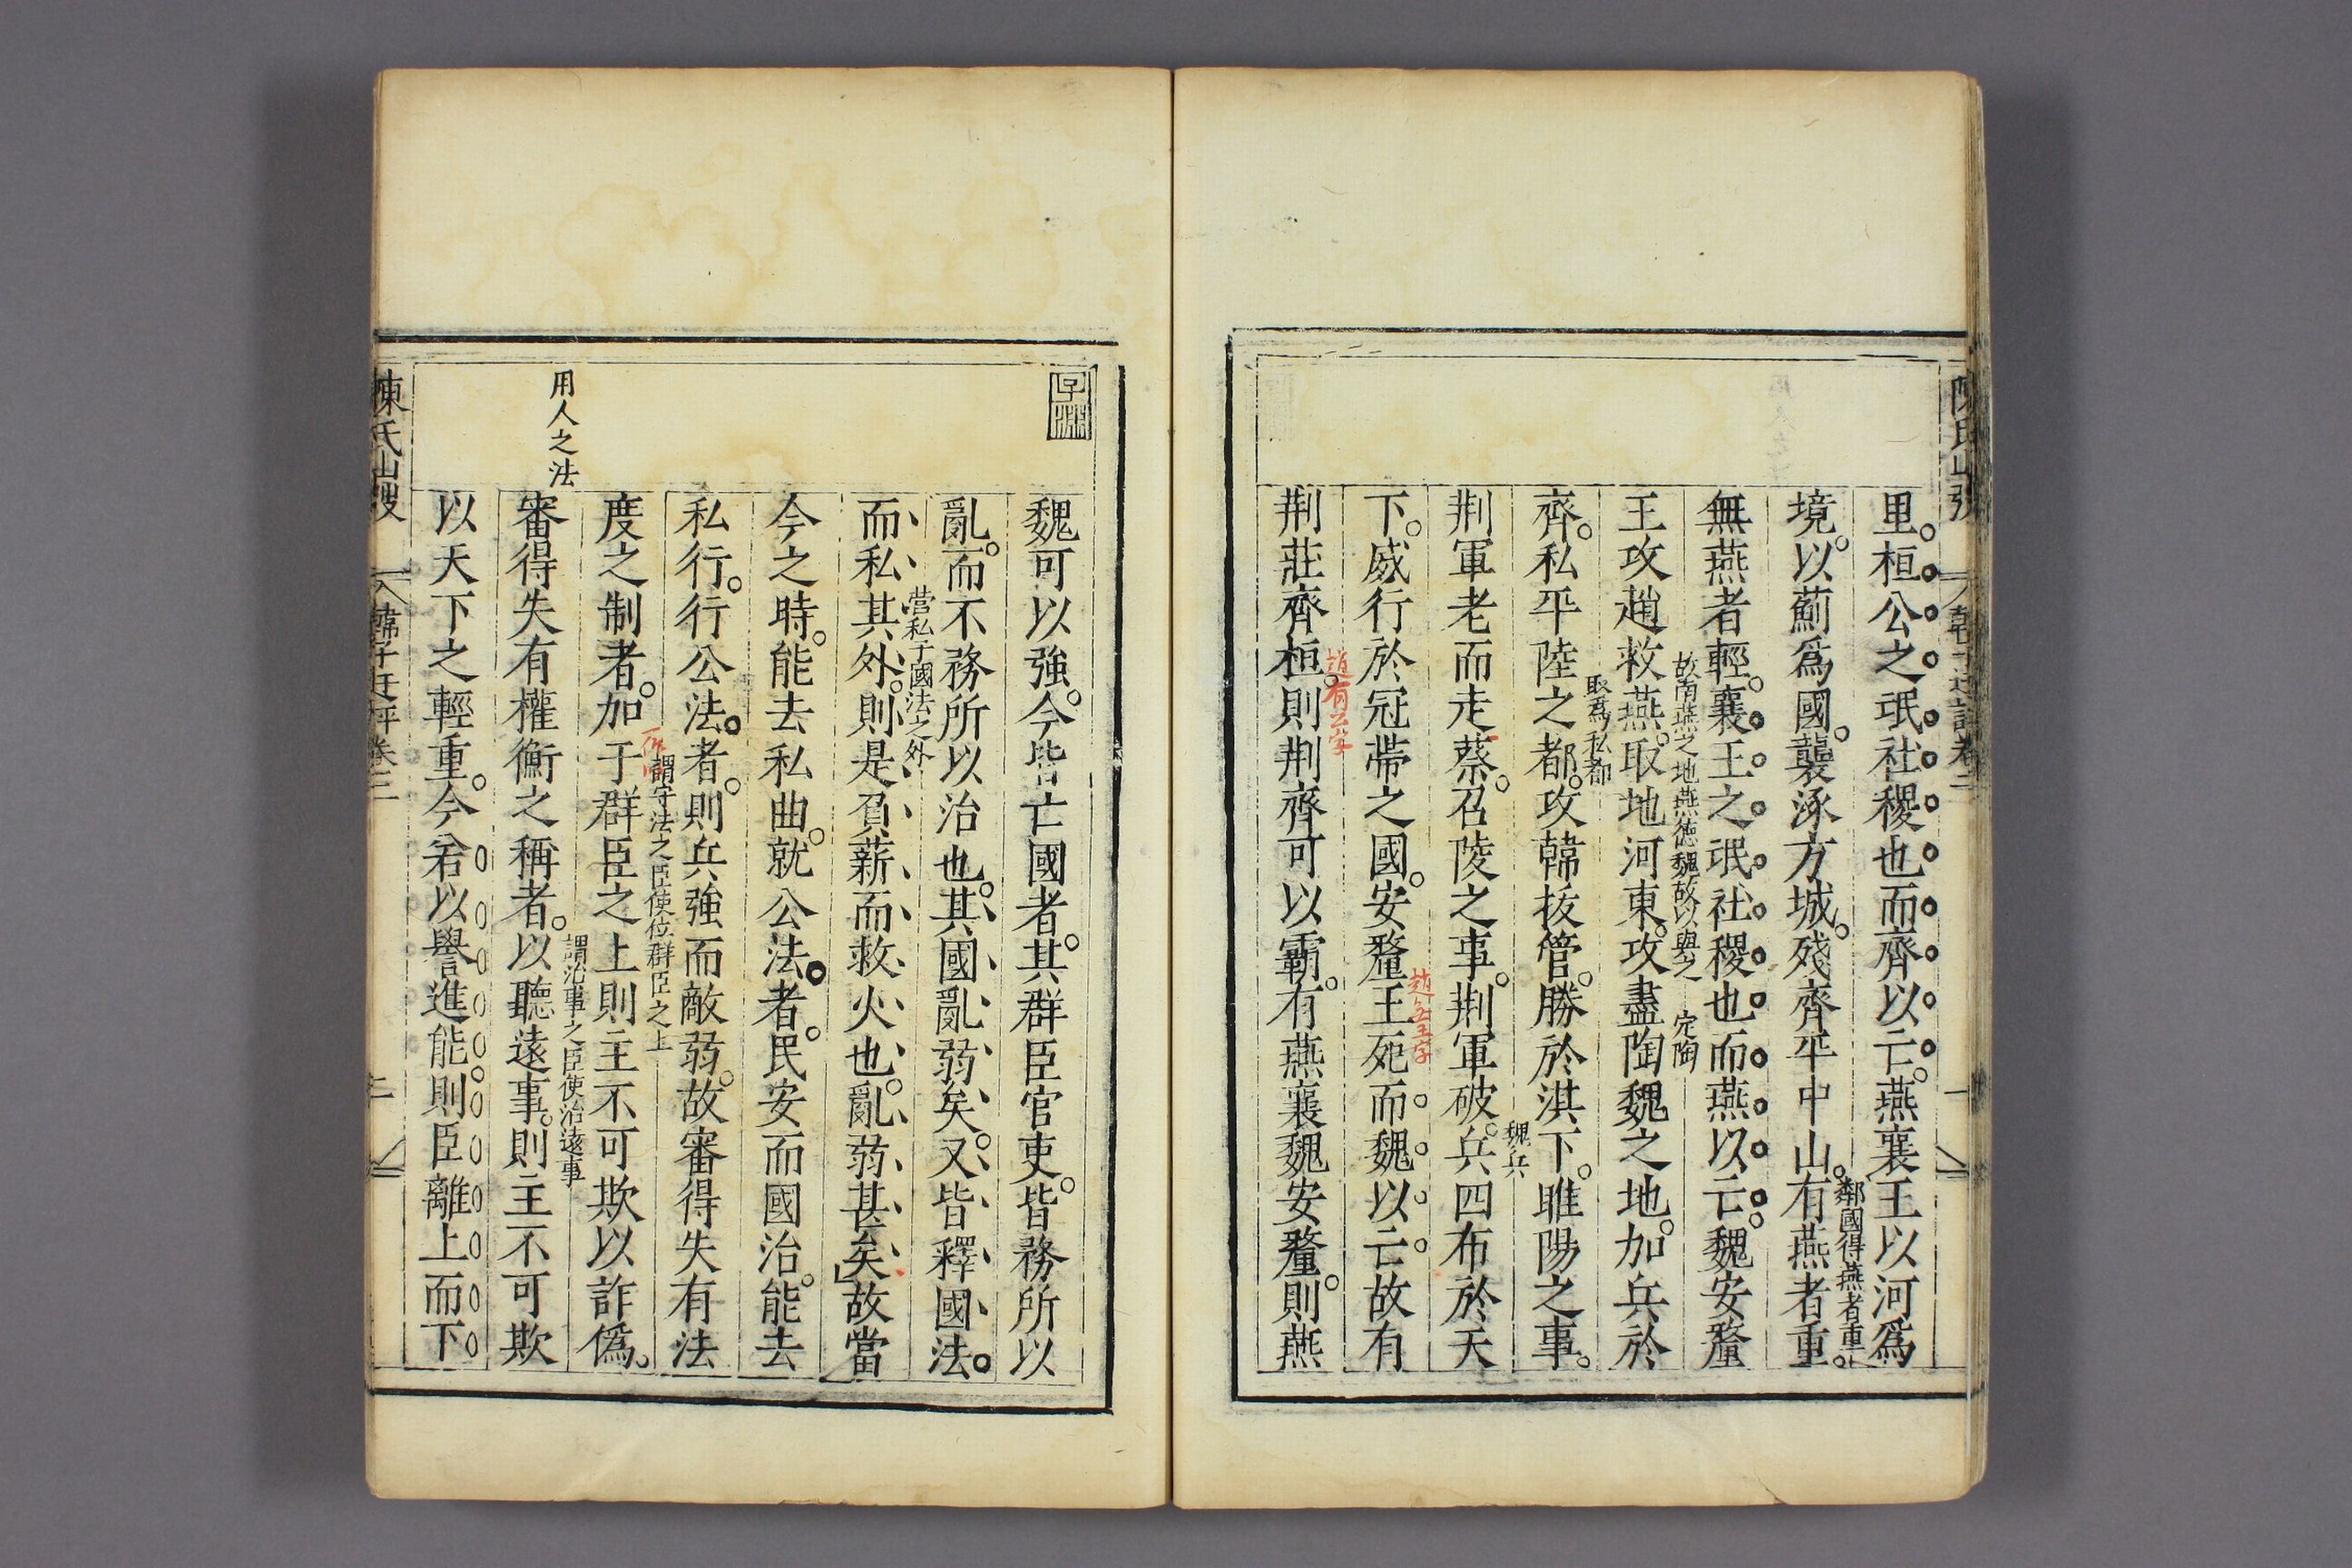 里桓公之氓社稷也而齊以亡燕襄王以河爲
境以薊爲國襲涿方城殘齊平中山有燕者重
鄰國得燕者重
無燕者輕襄王之氓社稷也而燕以亡魏安釐
故南燕之地燕德魏故以與之
定陶
王攻趙救燕取地河東攻盡陶魏之地加兵於
取爲私都
齊私平陸之都攻韓拔管勝於淇下睢陽之事
魏兵
荆軍老而走蔡召陵之事荆軍破兵四布於天
趙無王字
下威行於冠帶之國安釐王死而魏以亡故有
趙有公字
荆莊齊桓則荆齊可以霸有燕襄魏安釐則燕
魏可以強今皆亡國者其群臣官吏皆務所以
亂而不務所以治也其國亂弱矣又皆釋國法
營私于國法之外
而私其外則是負薪而救火也亂弱甚矣故當
今之時能去私曲就公法者民安而國治能去
私行行公法者則兵強而敵弱故審得失有法
謂守法之臣使位群臣之上
度之制者加于群臣之上則主不可欺以詐僞
謂治事之臣使治遠事
用人之法
審得失有權衡之稱者以聽遠事則主不可欺
以天下之輕重今若以譽進能則臣離上而下
陳氏
韓子迂評卷二
二